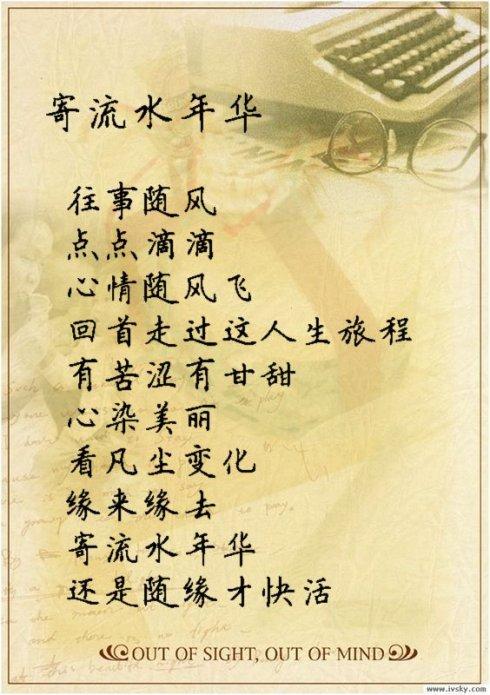 寄流水年华
往事随风
点点滴滴
心情随风飞
回首走过这人生旅程
有苦涩有甘甜
心染美丽
看凡尘变化
缘来缘去
寄流水年华
还是随缘才快活
OUT OF SIGHT, OUT OF MIND
www.ivsky.com